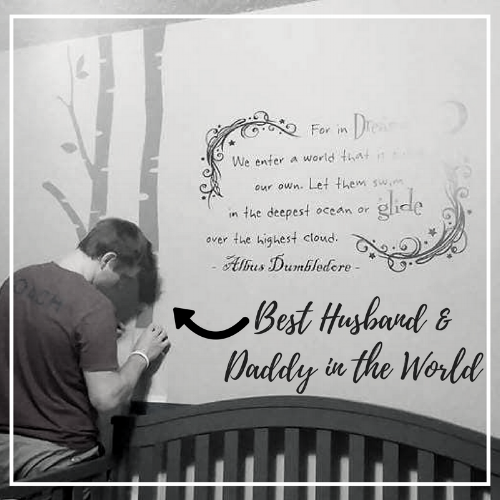 For in Dreams
We enter a world that is
our own. Let them swim
in the deepest ocean or glide
over the highest cloud.
- Albus Dumbledore -
Best Husband &
Daddy in the World